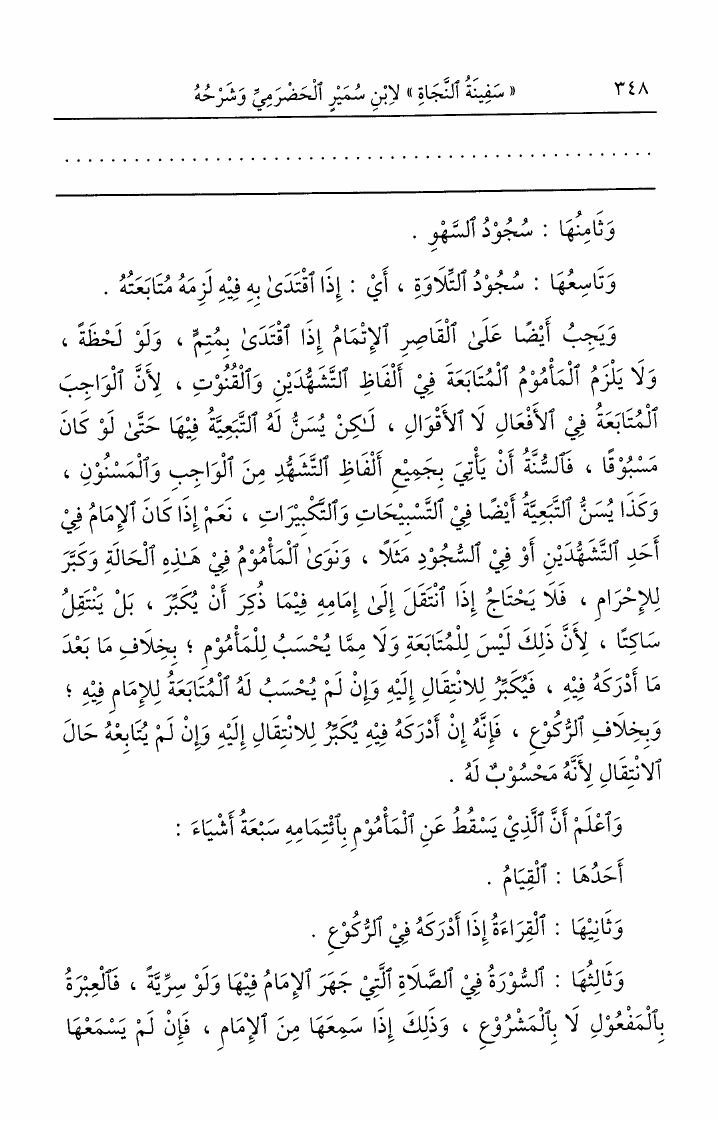 ٣٤٨ « سَفِينَةُ ٱلنَّجَاةِ » لاِبْنِ سُمَيْرٍ ٱلْحَضْرَمِيِّ وَشَرْحُهُ
. . . . . . . . . . . . . . . . . . . . . . . . . . . . . . . . . . . . . . . . . . . . . . . . . . . .
وَثَامِنُهَا : سُجُوْدُ ٱلسَّهْوِ .
وَتَاسِعُهَا : سُجُوْدُ ٱلتِّلَاوَةِ ، أَيْ : إِذَا ٱقْتَدَىٰ بِهِ فِيْهِ لَزِمَهُ مُتَابَعَتُهُ .
وَيَجِبُ أَيْضًا عَلَىٰ ٱلْقَاصِرِ ٱلإِتْمَامُ إِذَا ٱقْتَدَىٰ بِمُتِمٍّ ، وَلَوْ لَحْظَةً ،
وَلَا يَلْزَمُ ٱلْمَأْمُوْمُ ٱلْمُتَابَعَةَ فِيْ أَلْفَاظِ ٱلتَّشَهُّدَيْنِ وَٱلْقُنُوْتِ ، لِأَنَّ ٱلْوَاجِبَ
ٱلْمُتَابَعَةُ فِيْ ٱلأَفْعَالِ لَا ٱلأَقْوَالِ ، لَـٰكِنْ يُسَنُّ لَهُ ٱلتَّبَعِيَّةُ فِيْهَا حَتَّىٰ لَوْ كَانَ
مَسْبُوْقًا ، فَٱلسُّنَّةُ أَنْ يَأْتِيَ بِجَمِيْعِ أَلْفَاظِ ٱلتَّشَهُّدِ مِنَ ٱلْوَاجِبِ وَٱلْمَسْنُوْنِ ،
وَكَذَا يُسَنُّ ٱلتَّبَعِيَّةُ أَيْضًا فِيْ ٱلتَّسْبِيْحَاتِ وَٱلتَّكْبِيْرَاتِ ، نَعَمْ إِذَا كَانَ ٱلإِمَامُ فِيْ
أَحَدِ ٱلتَّشَهُّدَيْنِ أَوْ فِيْ ٱلسُّجُوْدِ مَثَلًا ، وَنَوَىٰ ٱلْمَأْمُوْمُ فِيْ هَـٰذِهِ ٱلْحَالَةِ وَكَبَّرَ
لِلإِحْرَامِ ، فَلَا يَحْتَاجُ إِذَا ٱنْتَقَلَ إِلَىٰ إِمَامِهِ فِيْمَا ذُكِرَ أَنْ يُكَبِّرَ ، بَلْ يَنْتَقِلُ
سَاكِتًا ، لِأَنَّ ذَلِكَ لَيْسَ لِلْمُتَابَعَةِ وَلَا مِمَّا يُحْسَبُ لِلْمَأْمُوْمِ ؛ بِخِلَافِ مَا بَعْدَ
مَا أَدْرَكَهُ فِيْهِ ، فَيُكَبِّرُ لِلانْتِقَالِ إِلَيْهِ وَإِنْ لَمْ يُحْسَبُ لَهُ ٱلْمُتَابَعَةُ لِلإِمَامِ فِيْهِ ؛
وَبِخِلَافِ ٱلرُّكُوْعِ ، فَإِنَّهُ إِنْ أَدْرَكَهُ فِيْهِ يُكَبِّرُ لِلانْتِقَالِ إِلَيْهِ وَإِنْ لَمْ يُتَابِعْهُ حَالَ
ٱلانْتِقَالِ لِأَنَّهُ مَحْسُوْبٌ لَهُ .
وَٱعْلَمْ أَنَّ ٱلَّذِيْ يَسْقُطُ عَنِ ٱلْمَأْمُوْمِ بِٱئْتِمَامِهِ سَبْعَةُ أَشْيَاءَ :
أَحَدُهَا : ٱلْقِيَامُ .
وَثَانِيْهَا : ٱلْقِرَاءَةُ إِذَا أَدْرَكَهُ فِيْ ٱلرُّكُوْعِ .
وَثَالِثُهَا : ٱلسُّوْرَةُ فِيْ ٱلصَّلَاةِ ٱلَّتِيْ جَهَرَ ٱلإِمَامُ فِيْهَا وَلَوْ سِرِّيَّةً ، فَٱلْعِبْرَةُ
بِٱلْمَفْعُوْلِ لَا بِٱلْمَشْرُوْعِ ، وَذَلِكَ إِذَا سَمِعَهَا مِنَ ٱلإِمَامِ ، فَإِنْ لَمْ يَسْمَعْهَا